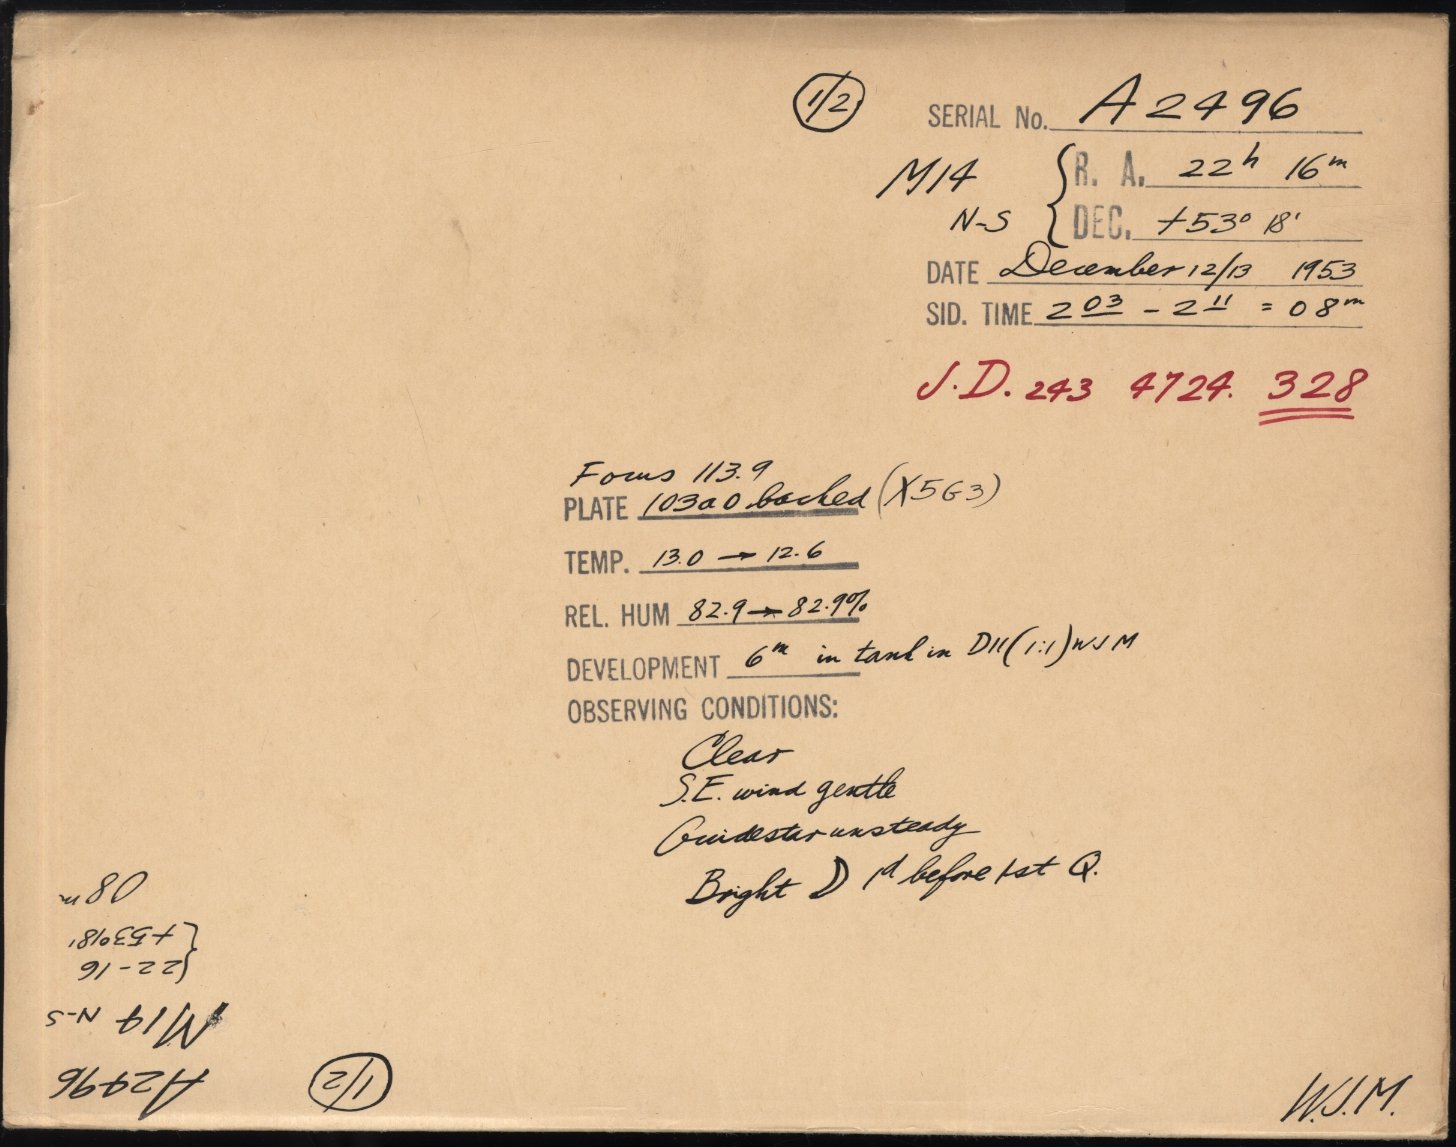 1/2
SERIAL No. A2496
M14 { R. A. 22h 16m
N-S DEC. +53° 18'
DATE December 12/13 1953
SID. TIME 2 03 - 2 11 = 08m
J.D. 243 4724. 328
Focus 113.9
PLATE 103a0 backed (X5G3)
TEMP. 13.0 → 12.6
REL. HUM 82.9 → 82.9%
DEVELOPMENT 6m in tank in D11 (1:1) WJM
OBSERVING CONDITIONS:
Clear
S.E. wind gentle
Guidestar unsteady
Bright D 1d before 1st Q.
A2496
1/2
M14 N-S
{22-16
+53°18'
08m
W.J.M.